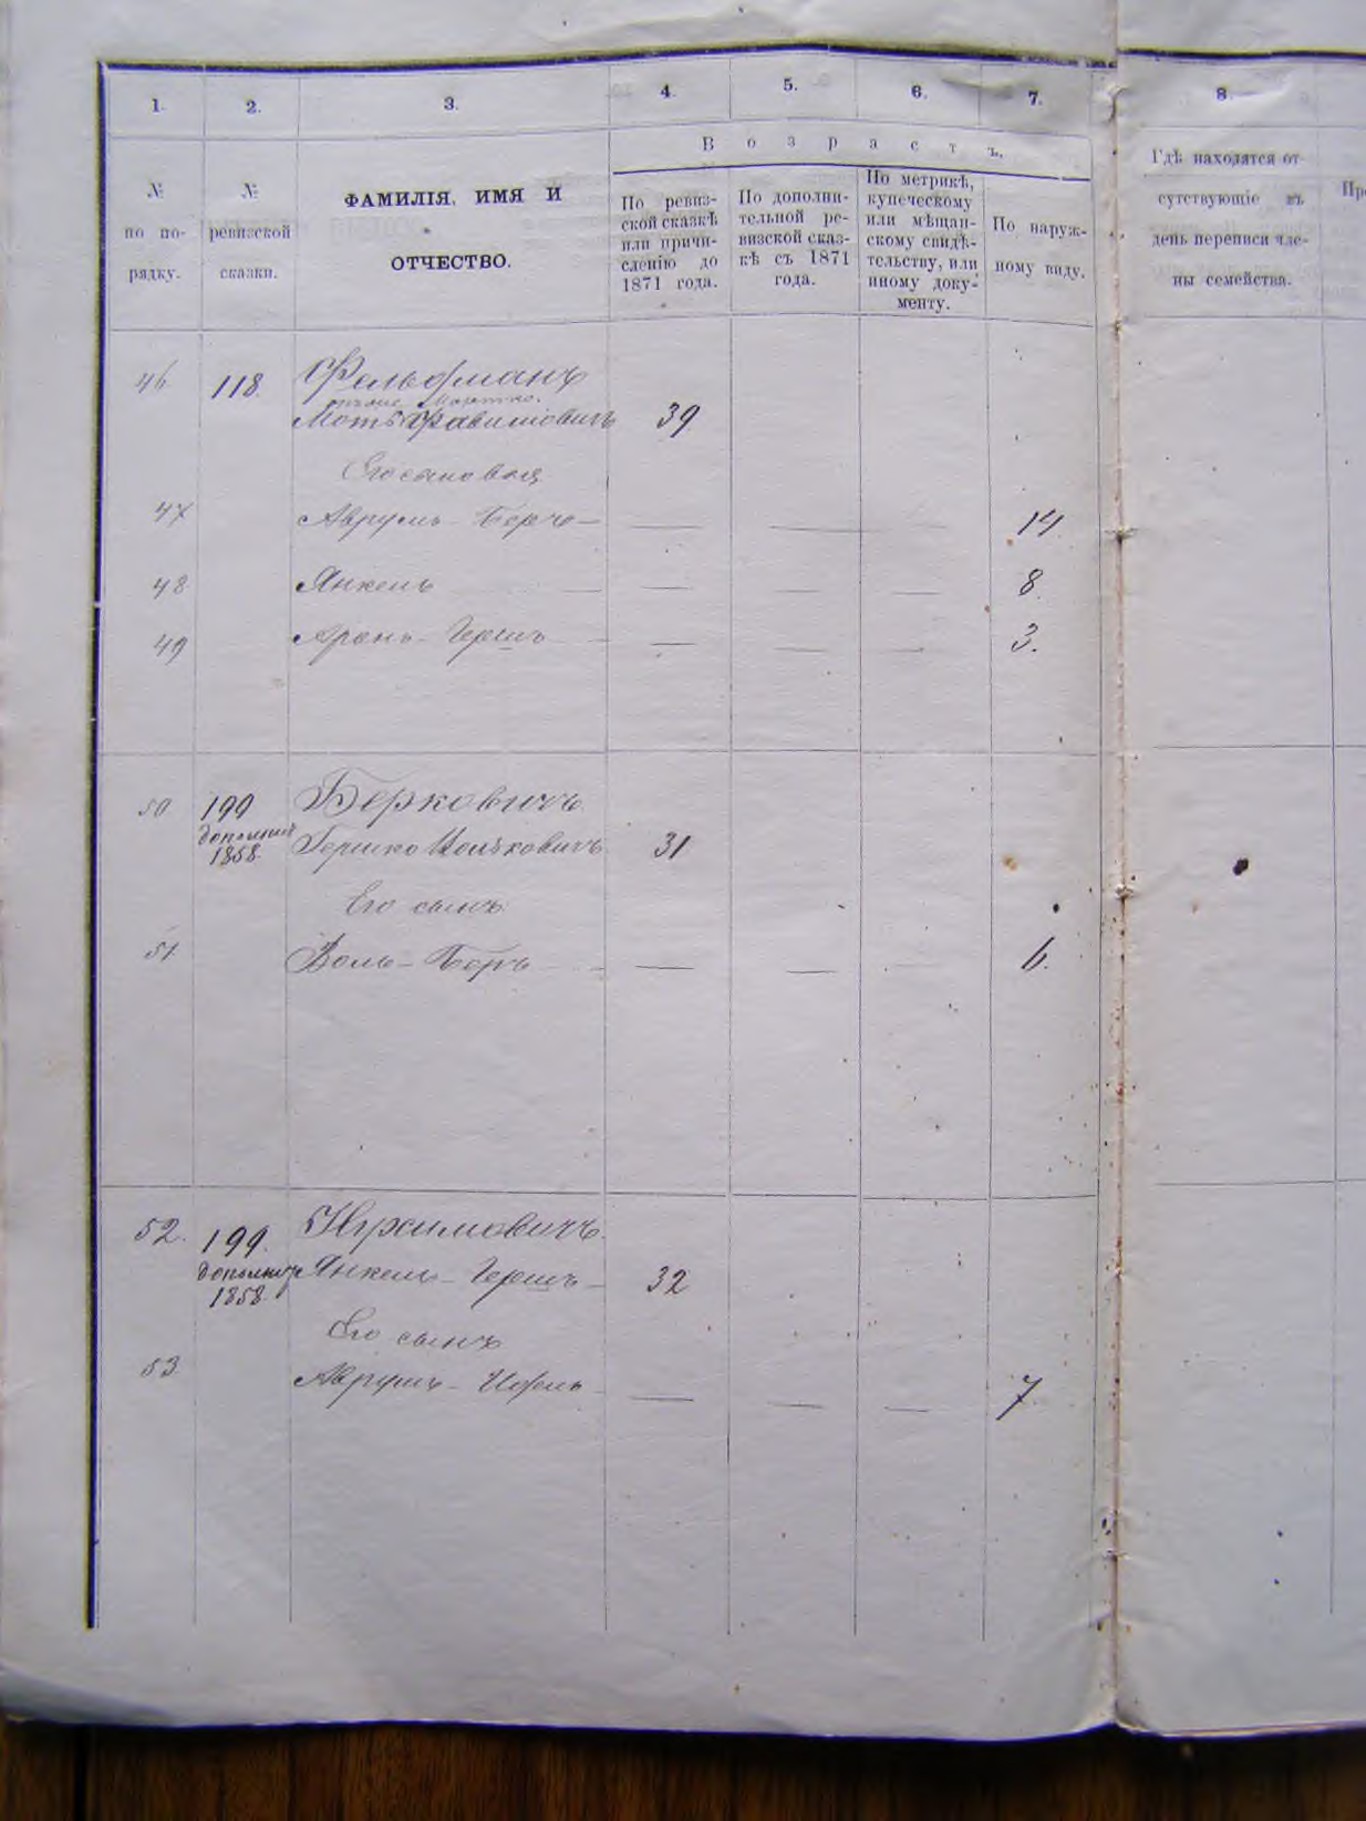 1. 2. 3. 4. 5. 6. 7. 8.
Возрастъ.
№
по по-
рядку.
№
ревизской
сказки.
ФАМИЛІЯ, ИМЯ И
ОТЧЕСТВО.
По ревиз-
ской сказкѣ
или причи-
сленію до
1871 года.
По дополни-
тельной ре-
визской сказ-
кѣ съ 1871
года.
По метрикѣ,
купеческому
или мѣщан-
скому свидѣ-
тельству, или
иному доку-
менту.
По наруж-
ному виду.
Гдѣ находятся от-
сутствующіе въ
день переписи чле-
ны семейства.
46 118. Фельдманъ
Мотъ 39
Его сыновья
47 Аврумъ-Берко — — — 14.
48 Янкель — — — 8.
49 Аронъ-Гершъ — — — 3.
50 199 Берковичъ
дополнит
1858. Гершко Ицьковичъ 31
Его сынъ
51 Воль-Беръ — — — 6.
52. 199. Нухимовичъ.
дополнит Янкель-Гершъ 32
1858.
Его сынъ
53 Аврумъ — — — 7.